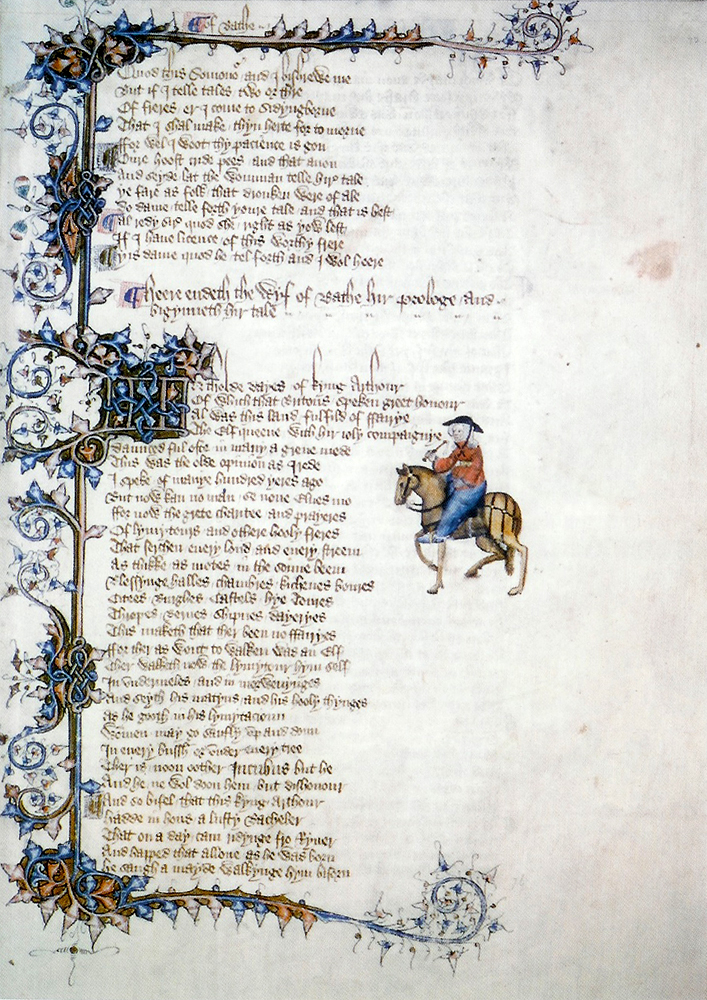 Of Bathe
Quod this Somono² and I bishrewe me
But if I telle tales two or thre
Of freres er I come to Sidyngborne
That I shal make thyn herte for to morne
ffor wel I woot thy pacience is gon
Oure hoost cride pees and that anon
And seyde lat the womman telle hire tale
ye fare as folk that dronken were of ale
Do dame telle forth youre tale and that is best
Al redy sire quod she right as yow lest
If I haue licence of this worthy frere
yis dame quod he tel forth and I wol heere
Heere endeth the Wyf of Bathe hir prologe And
bigynneth hir tale
In tholde dayes of kyng Arthour
Of which that Britons speken greet honour
Al was this land fulfild of ffairye
The Elf queene with hir ioly compaignye
daunced ful ofte in many a grene mede
This was the olde opinion as I rede
I speke of manye hundred yeres ago
But now kan no man se none Elues mo
ffor now the grete charitee and prayeres
Of lymytours and othere hooly freres
That serchen euery lond and euery streem
As thikke as motes in the sonne beem
Blessynge halles chambres kichenes boures
Citees Burghes Castels hye Toures
Thropes Bernes Shipnes dayeryes
This maketh that ther been no ffairyes
ffor ther as wont to walken was an Elf
Ther walketh now the lymytour hym self
In vndermeles and in morwenynges
And seyth his matyns and his hooly thynges
As he gooth in his lymytacioun
Wommen may go saufly vp and doun
In euery bussh or vnder euery tree
Ther is noon oother Incubus but he
And he ne wol doon hem but dishonour
And so bifel that this kyng Arthour
hadde in hous a lusty Bacheler
That on a day cam ridynge fro Ryuer
And happed that allone as he was born
he saugh a mayde walkynge hym biforn